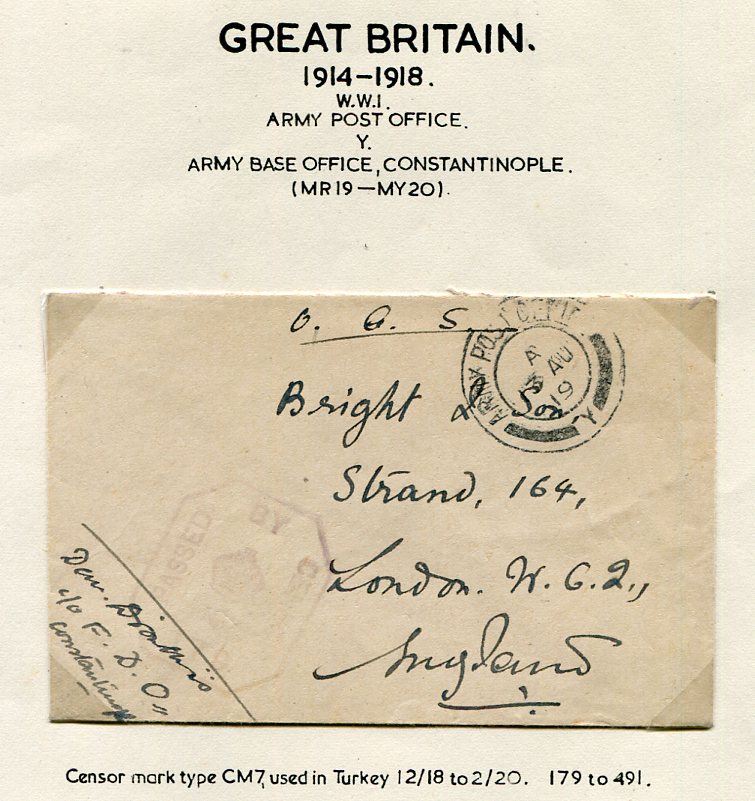 GREAT BRITAIN.
1914-1918.
W.W.I.
ARMY POST OFFICE.
Y.
ARMY BASE OFFICE, CONSTANTINOPLE.
(MR19-MY20).
O. A. S.
ARMY POST OFFICE
A
AU
19
Y
Bright & Son,
Strand, 164,
London. W.C.2.,
England
PASSED BY
c/o F. D. O.
Constantinople
Censor mark type CM7, used in Turkey 12/18 to 2/20. 179 to 491.